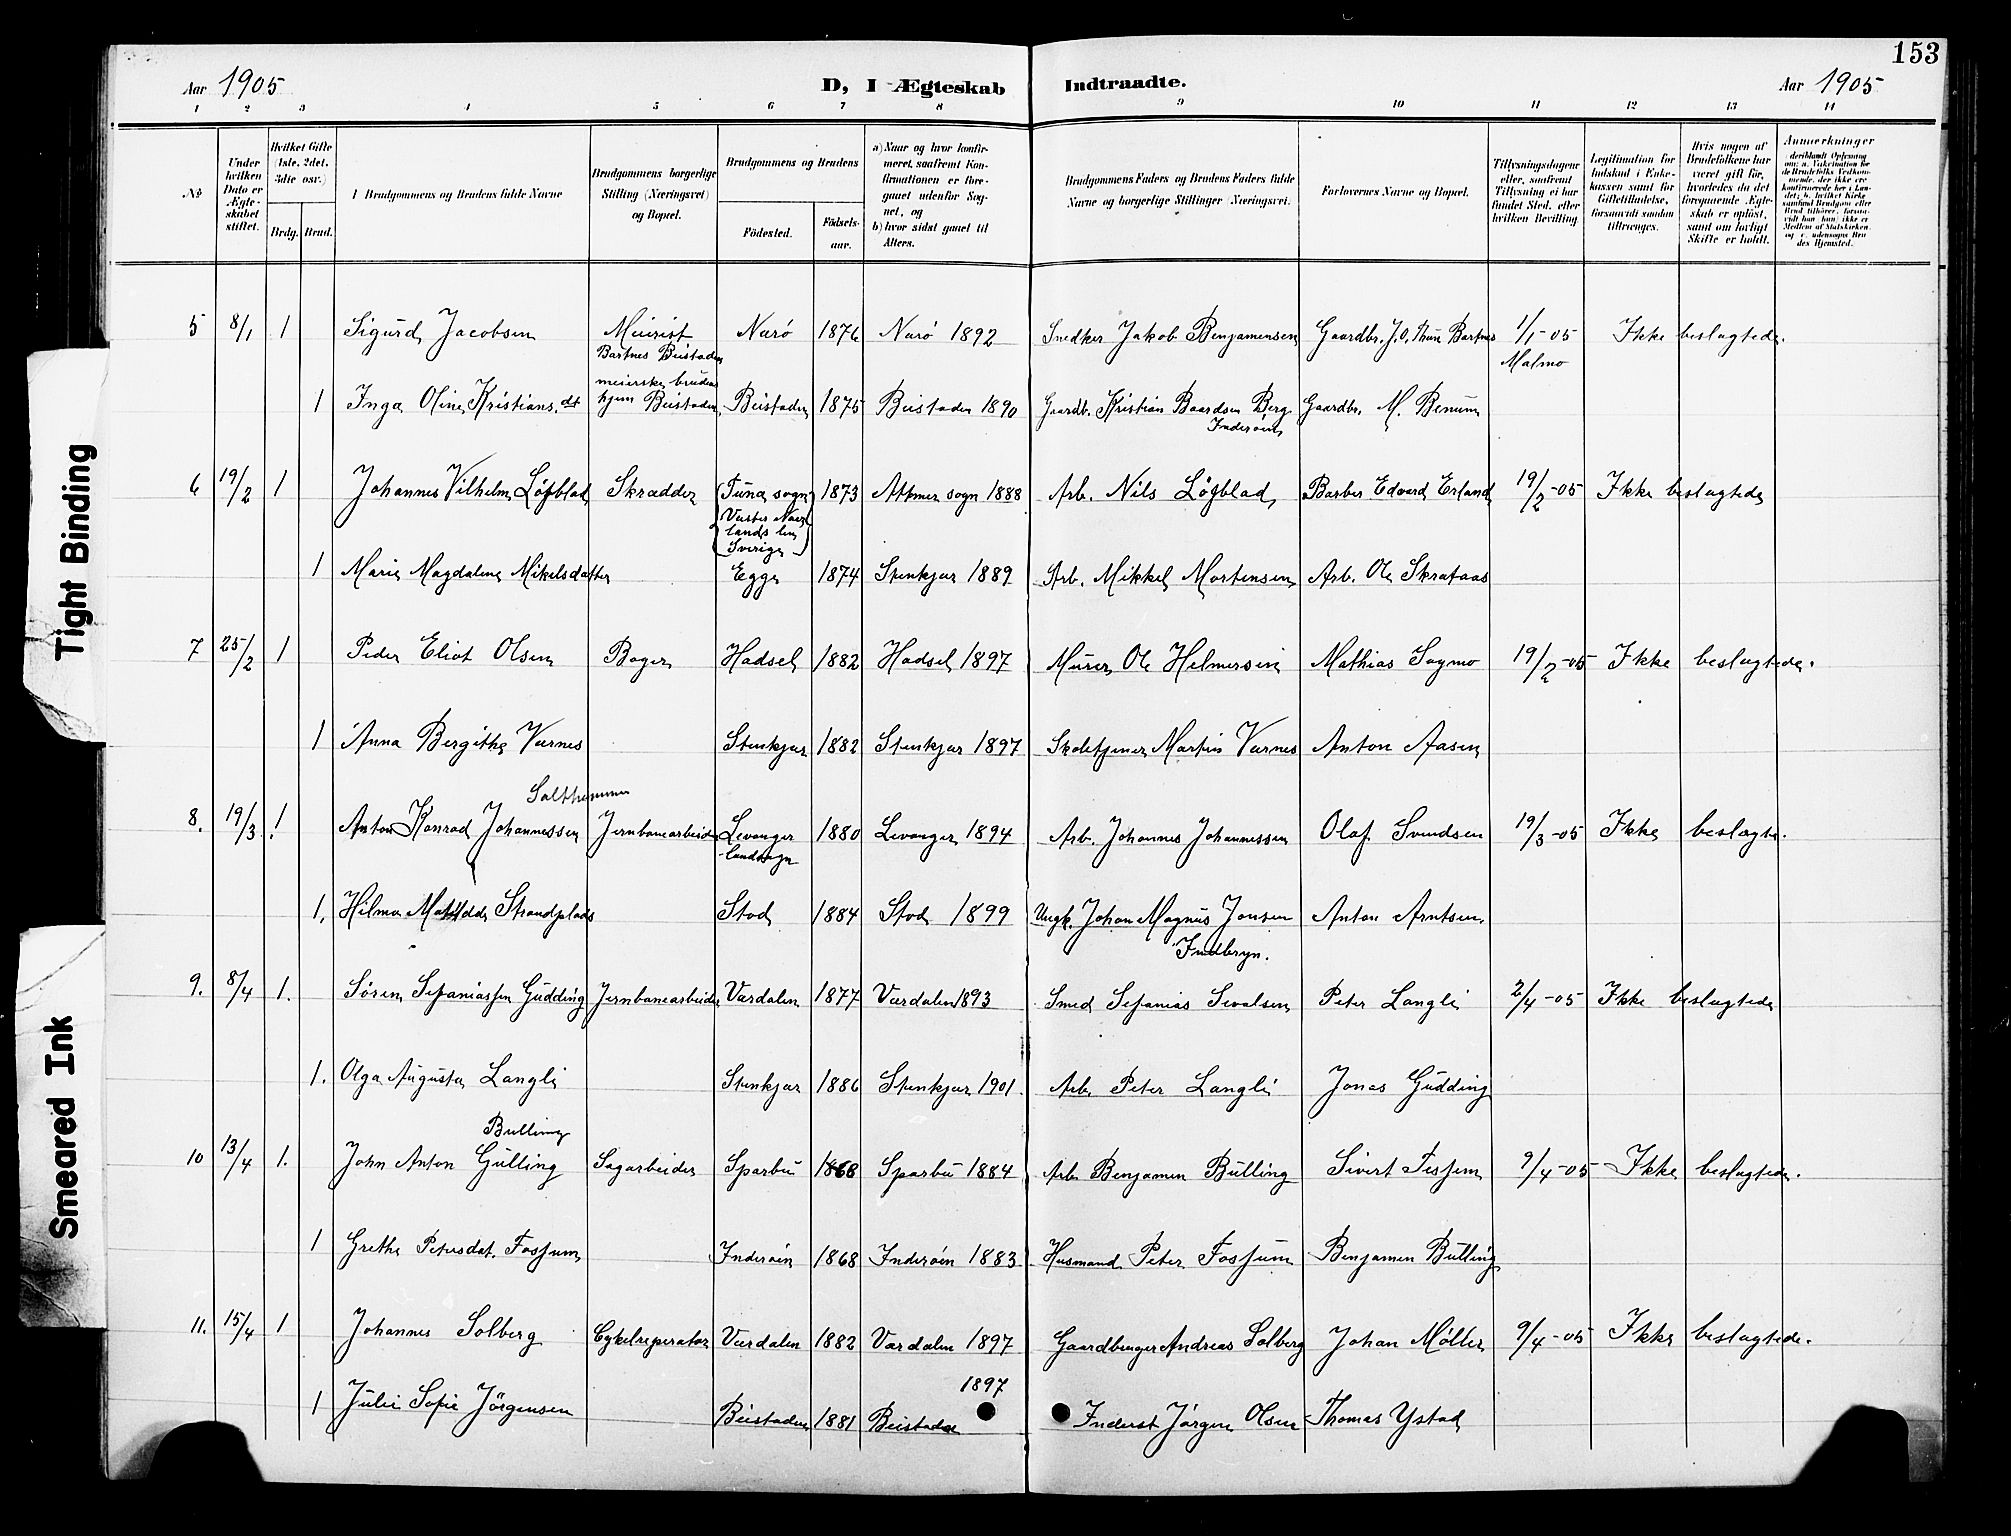 153
Aar 1905 D, I Ægteskab Indtraadte. Aar 1905
1 2 3 4 5 6 7 8 9 10 11 12 13 14
No
Under hvilken Dato er Ægteskabet stiftet.
Hvilket Gifte (1ste, 2det, 3die osv.)
Brdg. Brud.
Brudgommens og Brudens fulde Navne
Brudgommens borgerlige Stilling (Næringsvei) og Bopæl.
Brudgommens og Brudens
Födested. Födselsaar.
a) Naar og hvor konfirmeret, saafremt Konfirmationen er foregaaet udenfor Sognet, og
b) hvor sidst gaaet til Alters.
Brudgommens Faders og Brudens Faders fulde Navne og borgerlige Stillinger (Næringsvei.
Forlovernes Navne og Bopæl.
Tillysningsdagene eller, saafremt Tillysning ei har fundet Sted, efter hvilken Bevilling.
Legitimation for Indskud i Enkekassen samt for Giftetilladelse, forsaavidt saadan tiltrænges.
Hvis nogen af Brudefolkene har været gift før, hvorledes da det foregaaende Ægteskab er opløst, samt om lovligt Skifte er holdt.
Anmerkninger
5 8/1 1 Sigurd Jacobsen Meierist Nærö 1876 Nærö 1892 Snedker Jakob Benjamensen Gaardbr. J. O. Thun Bartnes 1/1-05 Ikke beslagtede.
Bartnes Beistaden Malmo
meierske brudens
1 Inga Oline Kristians.dt hjem Beistaden Beistaden 1875 Beistaden 1890 Gaardb. Kristian Baardsen Berg Gaardbr. M. Benum
Inderøen
6 19/2 1 Johannes Vilhelm Löfblad Skrædder (Tuna sogn 1873 Attmer sogn 1888 Arb. Nils Löfblad Barber Edvard Erland 19/2-05 Ikke beslagtede
Vester Norrlands len
Sverige)
1 Marie Magdalena Mikelsdatter Egge 1874 Stenkjær 1889 Arb. Mikkel Mortensen Arb. Ole Skrataas
7 25/2 1 Peder Eliot Olsen Bager Hadsel 1882 Hadsel 1897 Murer Ole Helmersen Mathias Sagmo 19/2-05 Ikke beslagtede.
1 Anna Bergithe Værnes Stenkjær 1882 Stenkjær 1897 Skoletjener Martin Værnes Anton Aasen
Salthammer
8. 19/3 1 Anton Konrad Johannessen Jernbanearbeider Levanger 1880 Levanger 1894 Arb. Johannes Johannessen Olaf Svendsen 19/3-05 Ikke beslagte.
-landsogn
1. Hilma Mathilde Strandplads Stod 1884 Stod 1899 Ungk. Johan Magnus Jonsen Anton Arntsen.
Indbryn.
9. 8/4 1. Sören Sefaniassen Gudding Jernbanearbeider Værdalen 1877 Værdalen 1893 Smed Sefanias Sevalsen Peter Langli 2/4-05 Ikke beslagtede
1. Olga Augusta Langli Stenkjær 1886 Stenkjær 1901. Arb. Peter Langli Jonas Gudding
Bulling
10 13/4 1. John Anton Gulling Sagarbeider Sparbu 1868 Sparbu 1884 Arb Benjamen Bulling Sivert Tessem 9/4-05 Ikke beslagtede.
1 Grethe Petersdat. Fossum Inderøen 1868 Inderøen 1883 Husmand Peter Fossum Benjamen Bulling
11. 15/4 1 Johannes Solberg Cykelreperatør Værdalen 1882 Værdalen 1897 Gaardbruger Andreas Solberg Johan Møller 9/4-05 Ikke beslagtede.
1897
1 Julie Sofie Jörgensen Beistaden 1881 Beistaden Inderst Jörgen Olsen Thomas Ystad
Tight Binding
Smeared Ink